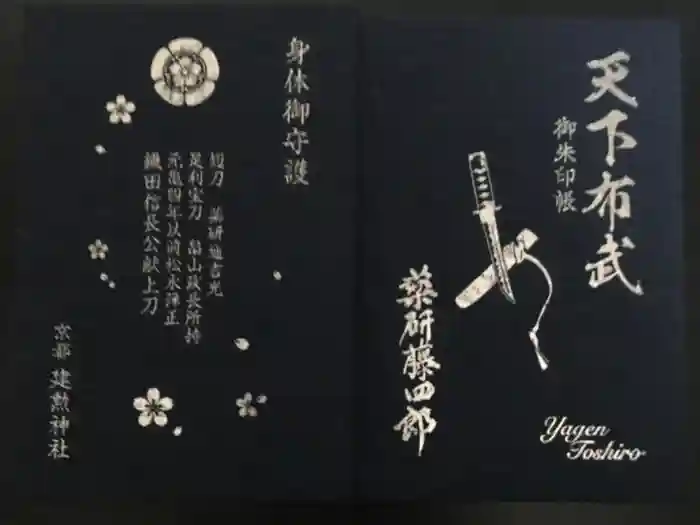 天下布武
御朱印帳
薬研藤四郎
Yagen
Toshiro
身体御守護
短刀 薬研藤吉光
足利宝刀 畠山政長所持
元亀四年以前松永弾正
織田信長公献上刀
京都 建勲神社